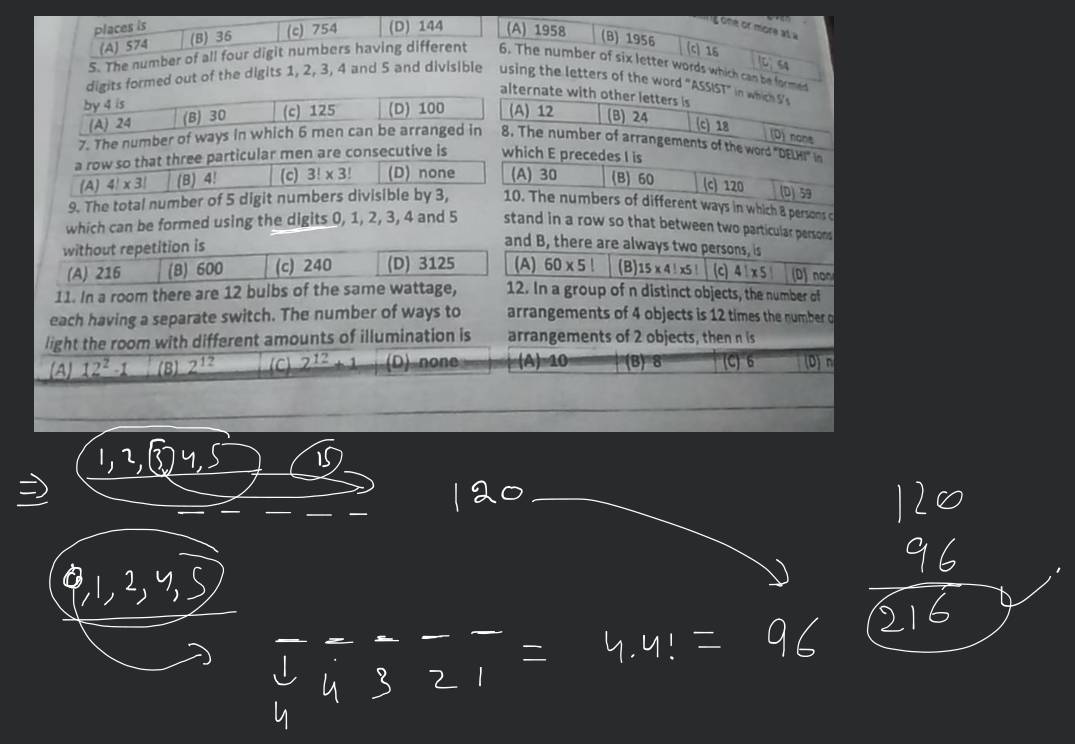 places is
(A) 574 (B) 36 (c) 754 (D) 144
5. The number of all four digit numbers having different
digits formed out of the digits 1, 2, 3, 4 and 5 and divisible
by 4 is
(A) 24 (B) 30 (c) 125 (D) 100
7. The number of ways in which 6 men can be arranged in
a row so that three particular men are consecutive is
(A) 4! x 3! (B) 4! (C) 3! x 3! (D) none
9. The total number of 5 digit numbers divisible by 3,
which can be formed using the digits 0, 1, 2, 3, 4 and 5
without repetition is
(A) 216 (B) 600 (c) 240 (D) 3125
11. In a room there are 12 bulbs of the same wattage,
each having a separate switch. The number of ways to
light the room with different amounts of illumination is
(A) 12² -1 (B) 2¹² (C) 2¹² + 1 (D) none
one or more at a
(A) 1958 (B) 1956 (c) 16 64
6. The number of six letter words which can be formed
using the letters of the word "ASSIST" in which S's
alternate with other letters is
(A) 12 (B) 24 (c) 18 (D) none
8. The number of arrangements of the word "DELHI" in
which E precedes I is
(A) 30 (B) 60 (c) 120 (D) 59
10. The numbers of different ways in which 8 persons c
stand in a row so that between two particular persons
and B, there are always two persons, is
(A) 60 x 5 ! (B)15 x 4 ! x5 ! (c) 4 ! x 5 ! (D) non
12. In a group of n distinct objects, the number of
arrangements of 4 objects is 12 times the number o
arrangements of 2 objects, then n is
(A) 10 (B) 8 (C) 6 (D) n
⇒ 1, 2, 3, 4, 5 15
120
0, 1, 2, 4, 5
= 4.4! = 96
4 4 3 2 1
120
96
216